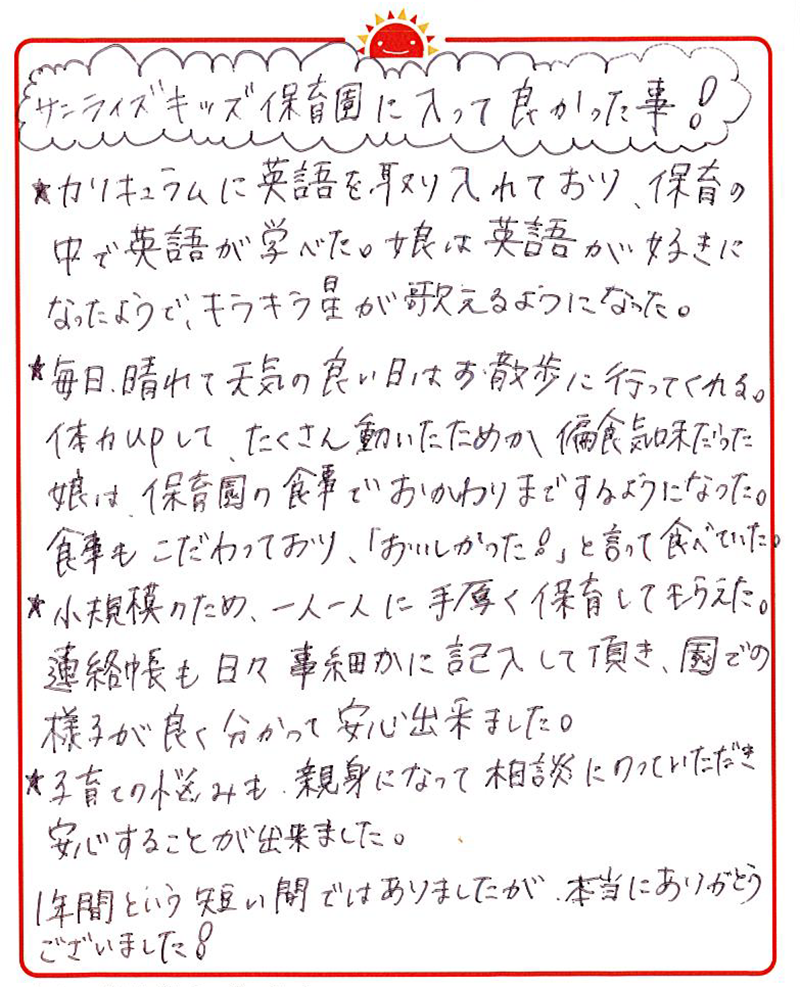 サンライズキッズ保育園に入って良かった事!
★カリキュラムに英語を取り入れており、保育の
中で英語が学べた。娘は英語が好きに
なったようで、キラキラ星が歌えるようになった。
★毎日、晴れて天気の良い日はお散歩に行ってくれる。
体力upして、たくさん動いたためか、偏食気味だった
娘は、保育園の食事でおかわりまでするようになった。
食事もこだわっており、「おいしかった!」と言って食べていた。
★小規模のため、一人一人に手厚く保育してもらえた。
連絡帳も日々事細かに記入して頂き、園での
様子が良く分かって安心出来ました。
★子育ての悩みも、親身になって相談にのっていただき
安心することが出来ました。
1年間という短い間ではありましたが、本当にありがとう
ございました!